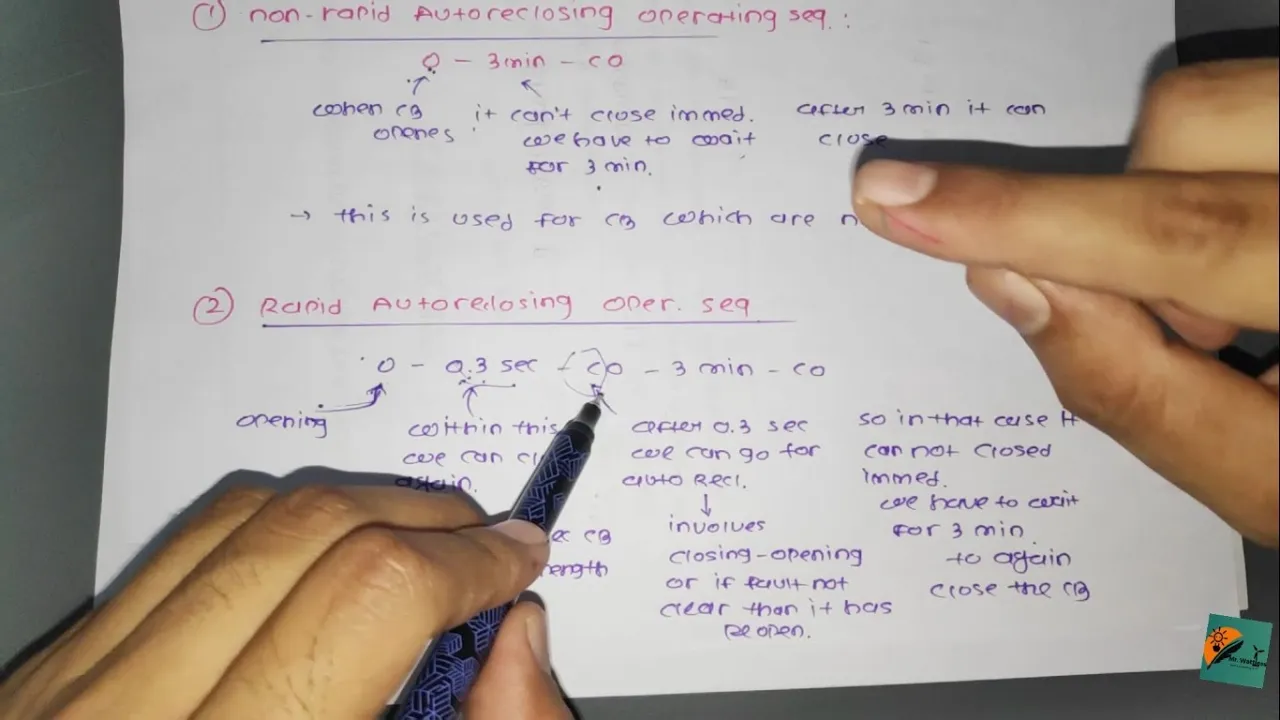 ① non-rapid Autoreclosing operating seq. :
O - 3min - CO
when CB it can't close immed. after 3 min it can
opens we have to wait close
for 3 min.
→ this is used for CB which are
② Rapid Autoreclosing oper. seq
O - 0.3 sec - CO - 3 min - CO
opening within this after 0.3 sec so in that case it
we can we can go for can not closed
again. auto Recl. immed.
we have to wait
involves for 3 min
CB closing-opening to again
or if fault not close the CB
clear than it has
Re open.
Mr. Wattson